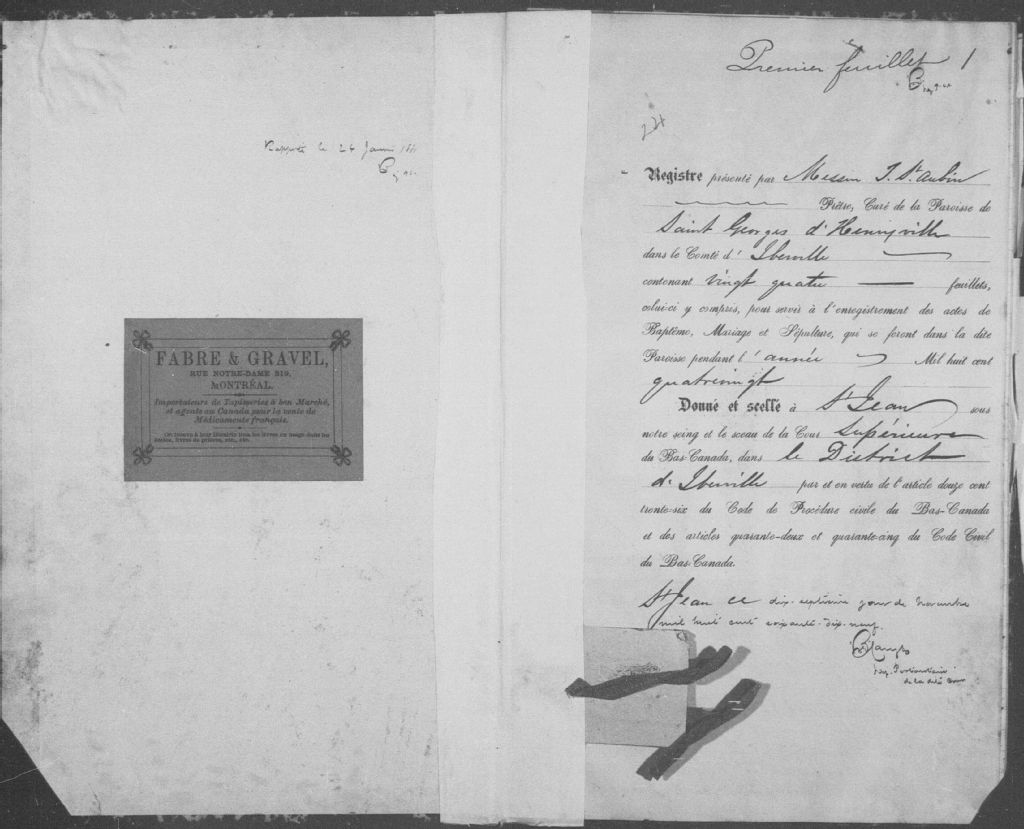 Rapporté le 24 Janv
FABRE & GRAVEL,
RUE NOTRE-DAME 219,
MONTRÉAL.
Importateurs de Tapisseries à bon Marché,
et agents au Canada pour la vente de
Médicaments français.
On trouve à leur librairie tous les livres en usage dans les
écoles, livres de prières, etc., etc.
Premier feuillet 1
24
Registre présenté par Messire J. St. Aubin
Prêtre, Curé de la Paroisse de
Saint Georges d'Henryville
dans le Comté d' Iberville
contenant vingt quatre feuillets,
celui-ci y compris, pour servir à l'enregistrement des actes de
Baptême, Mariage et Sépulture, qui se feront dans la dite
Paroisse pendant l'année Mil huit cent
quatrevingt
Donné et scellé à St Jean sous
notre seing et le sceau de la Cour Supérieure
du Bas-Canada, dans le District
d'Iberville par et en vertu de l'article douze cent
trente-six du Code de Procédure civile du Bas-Canada
et des articles quarante-deux et quarante-cinq du Code Civil
du Bas-Canada.
St Jean ce dix-septième jour de Novembre
mil huit cent soixante-dix-neuf.
Dép. Protonotaire
de la dite Cour